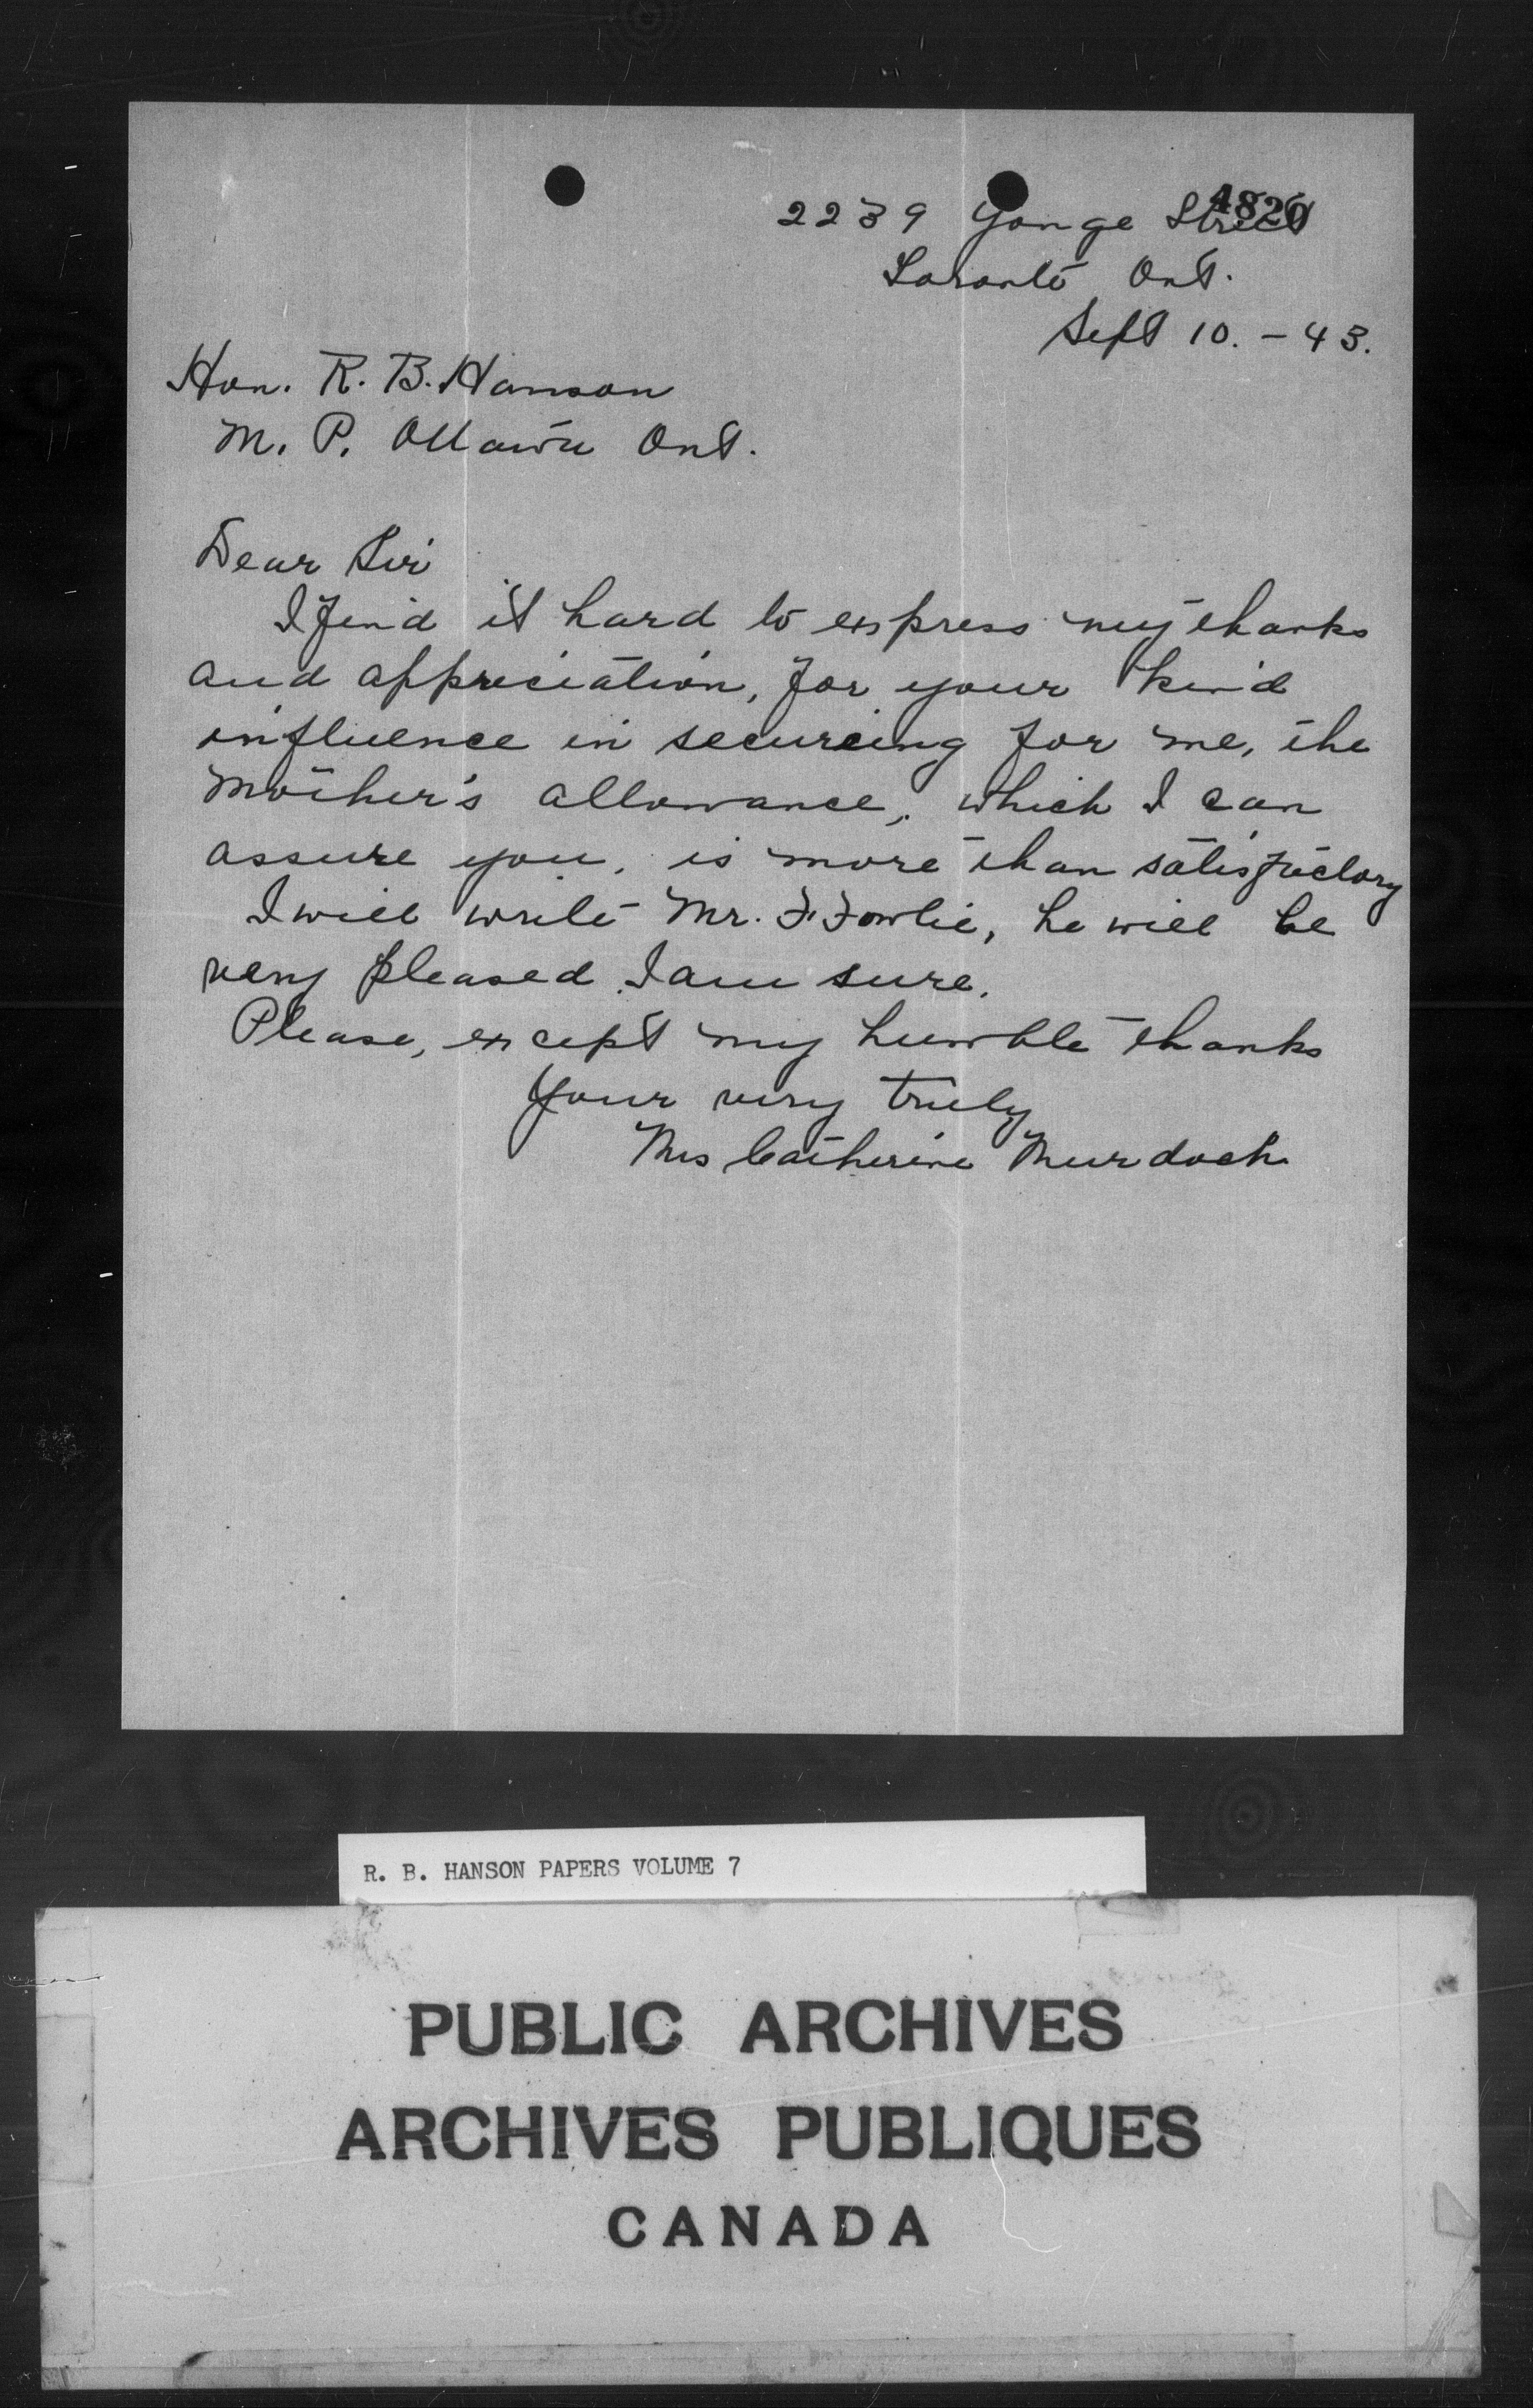 4820
2239 Yonge Street
Toronto Ont.
Sept 10. - 43.
Hon. R. B. Hanson
M. P. Ottawa Ont.
Dear Sir
I find it hard to express my thanks
and appreciation, for your kind
influence in secureing for me, the
Mother's allowance, which I can
assure you, is more than satisfactory
I will write Mr. F. Fowlie, he will be
very pleased I am sure.
Please, except my humble thanks
Your very truly
Mrs Catherine Murdoch
R. B. HANSON PAPERS VOLUME 7
PUBLIC ARCHIVES
ARCHIVES PUBLIQUES
CANADA